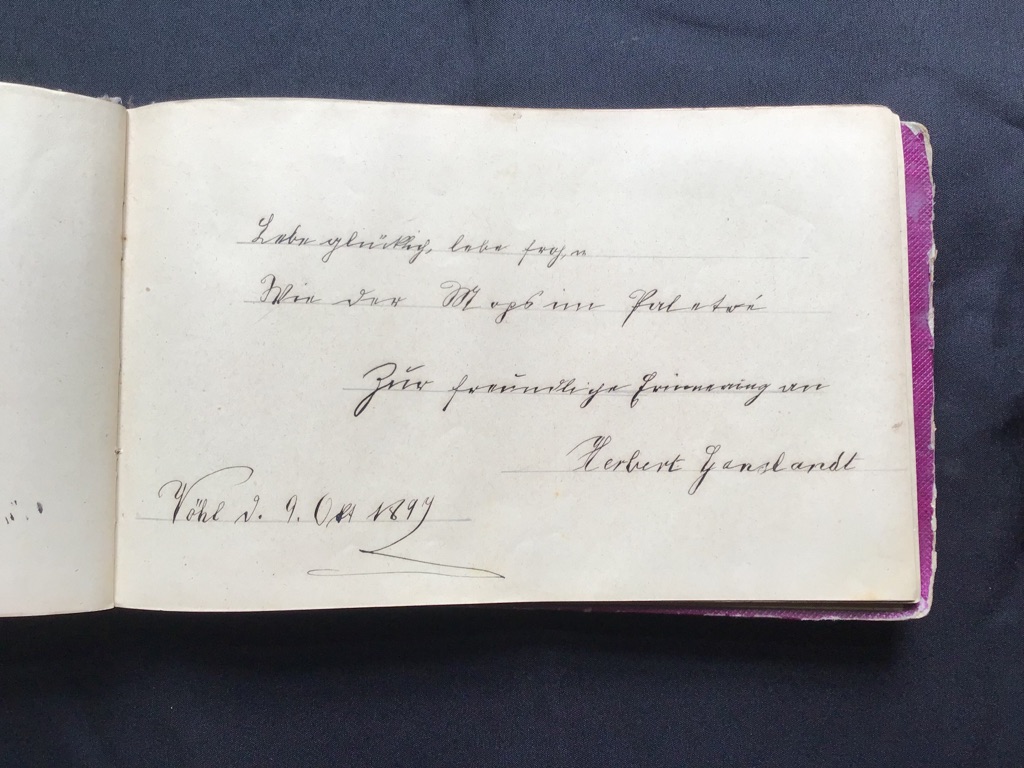 Lebe glücklich, lebe froh,
Wie der Mops im Paletró
Zur freundliche Erinnerung an
Herbert
Vöhl d. 9. Okt 1897